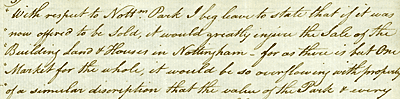 " With respect to Nottm Park I beg leave to state that if it was
" now offered to be Sold, it would greatly injure the Sale of the
" Building Land & Houses in Nottingham – for as there is but One
" Market for the whole, it would be so overflowing with property
" of a simular discription that the value of the Park & every